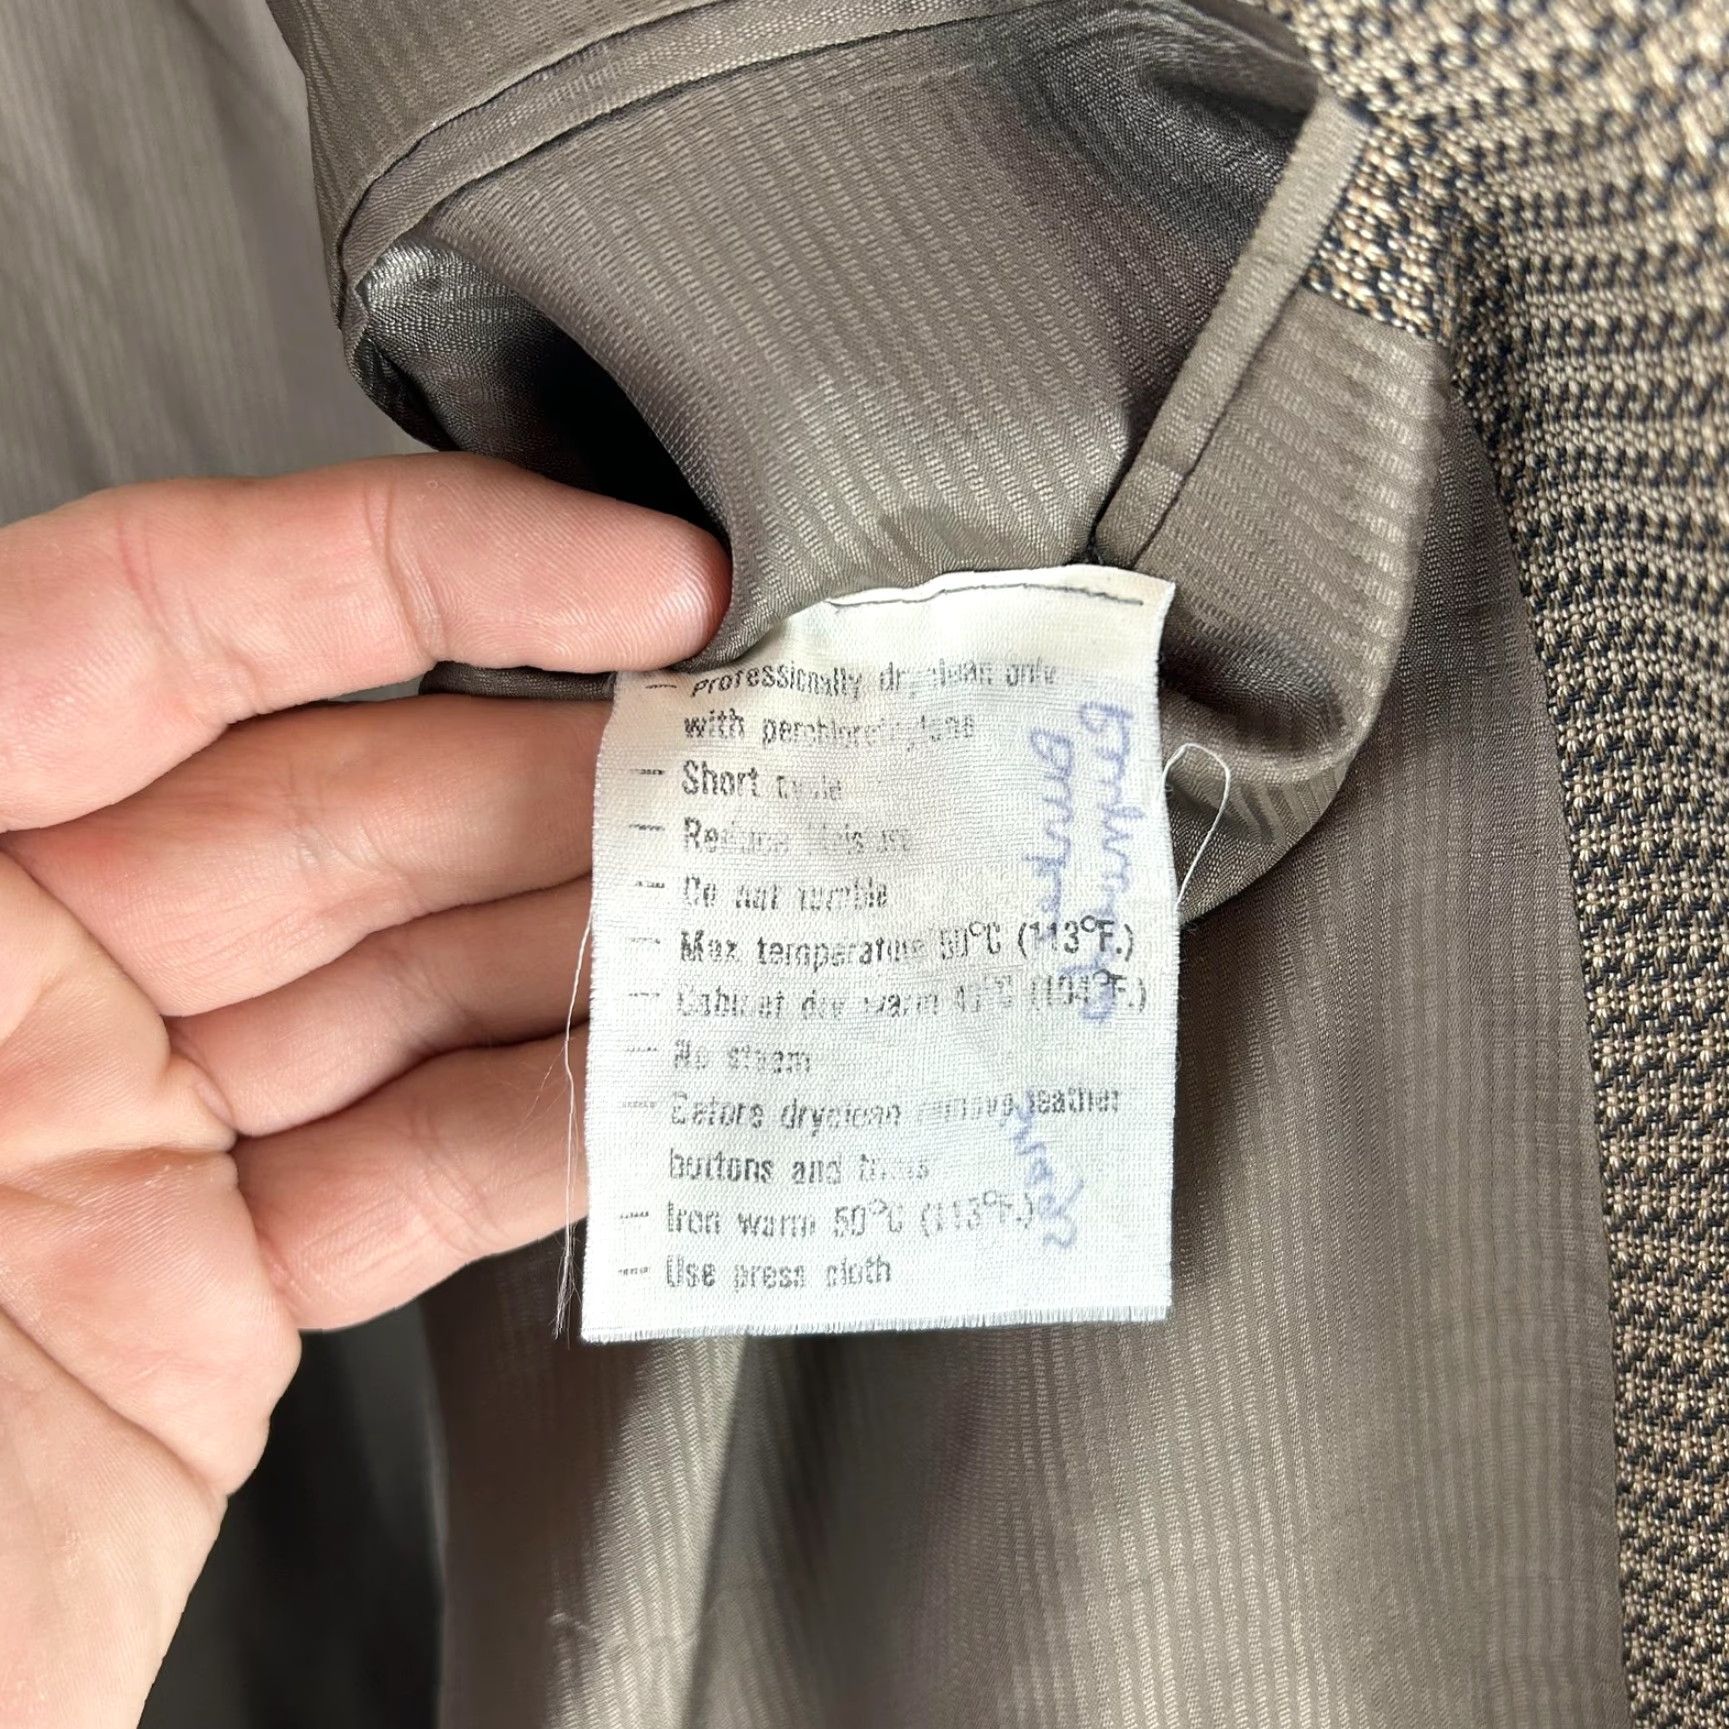 — Professionally dryclean only
with perchlorethylene
— Short cycle
— Reduce Moisture
— Do not tumble
— Max temperature 50°C (113°F.)
— Cabinet dry warm 40°C (104°F.)
— No steam
— Before dryclean remove leather
buttons and trims
— Iron warm 50°C (113°F.)
— Use press cloth